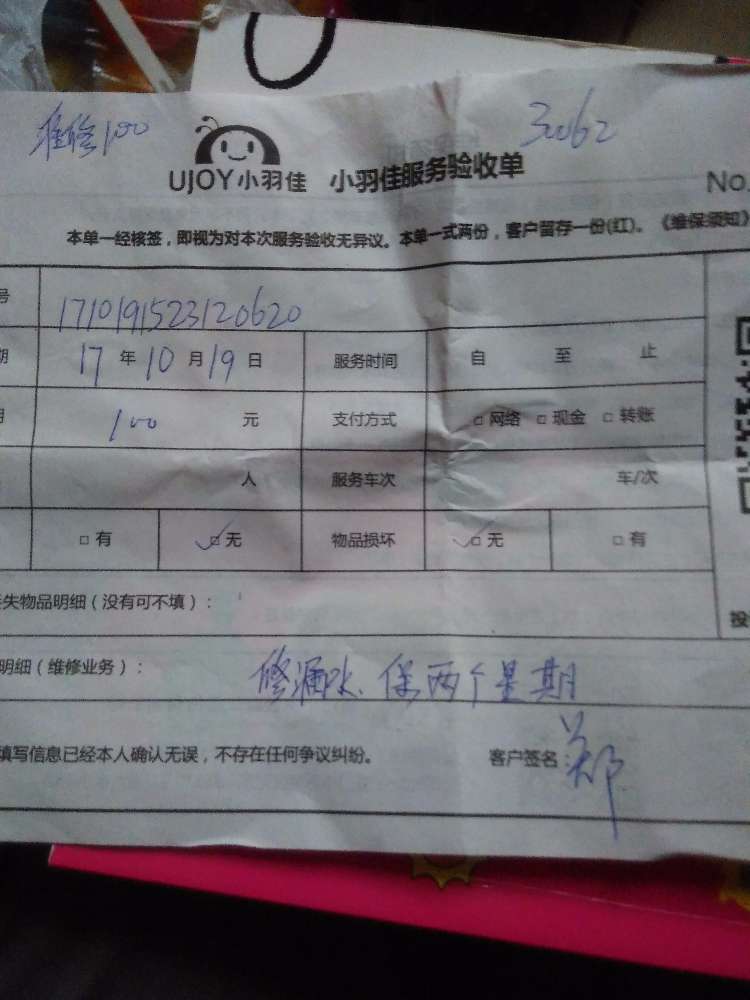 维修100
30062
UJOY小羽佳 小羽佳服务验收单
No.
本单一经核签，即视为对本次服务验收无异议。本单一式两份，客户留存一份(红)。《维保须知》
号 1710191523120620
期 17年10月19日 服务时间 自 至 止
100 元 支付方式 □网络 □现金 □转账
人 服务车次 车/次
□有 ✓□无 物品损坏 ✓□无 □有
失物品明细（没有可不填）：
投
明细（维修业务）： 修漏水、保两个星期
填写信息已经本人确认无误，不存在任何争议纠纷。 客户签名：郑